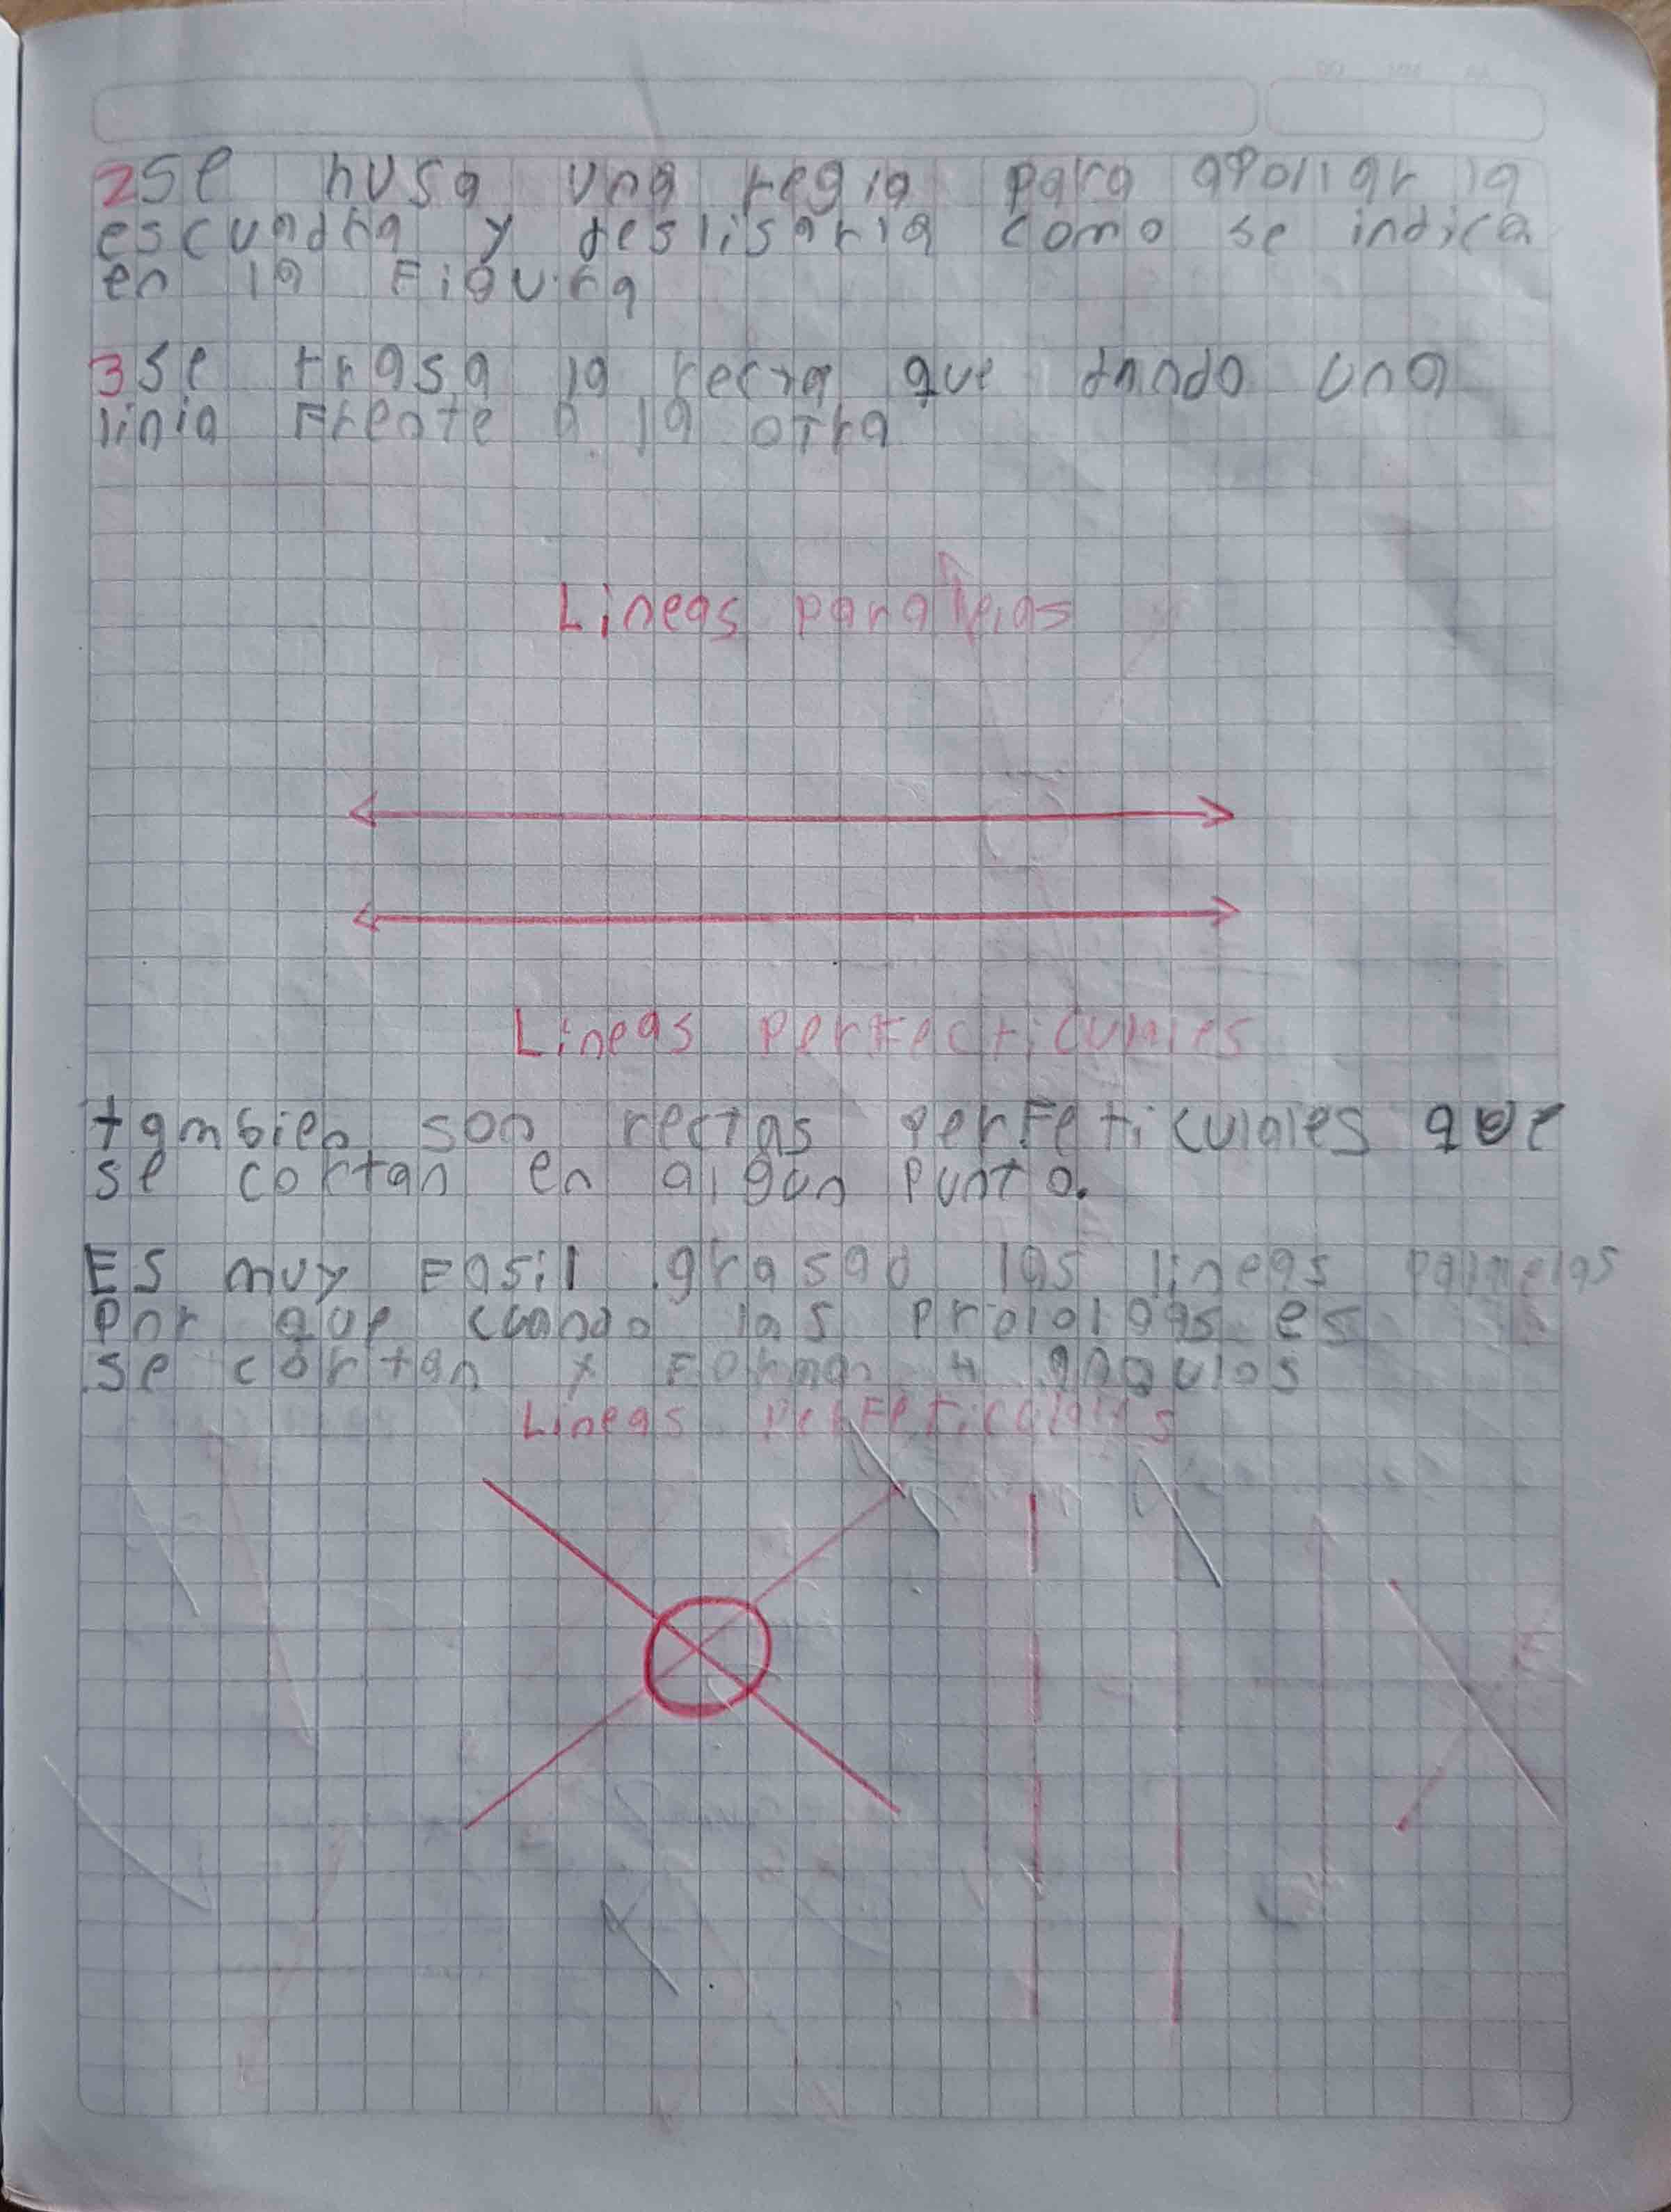 2 Se husa una regla para apollar la
escuadra y deslisarla como se indica
en la Figura
3 Se trasa la recta que dando una
linia Frente a la otra
Lineas paralelas
Lineas perfecticulales
tambien son rectas perfeticulales que
se cortan en algun punto.
ES muy Fasil grasad las lineas paralelas
por que cuando las es
se cortan y Forman 4 angulos
Lineas perfeticulales